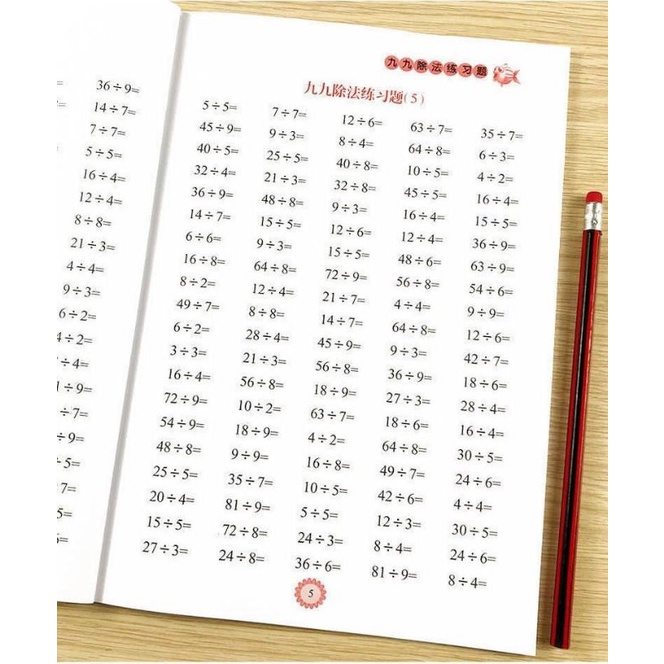 36÷9=
14÷7=
7÷7=
5÷5=
16÷4=
12÷4=
8÷8=
21÷3=
4÷4=
9÷3=
6÷2=
÷2=
÷4=
÷9=
÷7=
÷9=
÷5=
÷7=
÷5=
九九除法练习题
九九除法练习题(5)
5÷5= 7÷7= 12÷6= 63÷7= 35÷7=
45÷9= 9÷3= 8÷4= 64÷8= 6÷3=
40÷5= 25÷5= 40÷8= 10÷5= 4÷2=
32÷4= 21÷3= 32÷8= 45÷5= 16÷4=
36÷9= 48÷8= 9÷3= 16÷4= 15÷5=
14÷7= 15÷5= 12÷6= 12÷4= 36÷9=
6÷6= 9÷3= 15÷5= 48÷6= 63÷9=
16÷8= 64÷8= 72÷9= 56÷8= 54÷6=
8÷2= 12÷4= 21÷7= 4÷4= 9÷9=
49÷7= 8÷8= 14÷7= 64÷8= 12÷6=
6÷2= 28÷4= 45÷9= 9÷3= 42÷7=
3÷3= 21÷3= 56÷8= 36÷9= 18÷6=
16÷4= 56÷8= 18÷9= 27÷3= 28÷4=
72÷9= 10÷2= 63÷7= 18÷6= 16÷4=
54÷9= 18÷9= 4÷2= 64÷8= 30÷5=
48÷8= 9÷9= 16÷8= 49÷7= 24÷6=
25÷5= 35÷7= 10÷5= 42÷6= 4÷4=
20÷4= 81÷9= 5÷5= 12÷3= 30÷5=
15÷5= 72÷8= 24÷3= 8÷4= 24÷6=
27÷3= 24÷8= 36÷6= 81÷9= 8÷4=
5